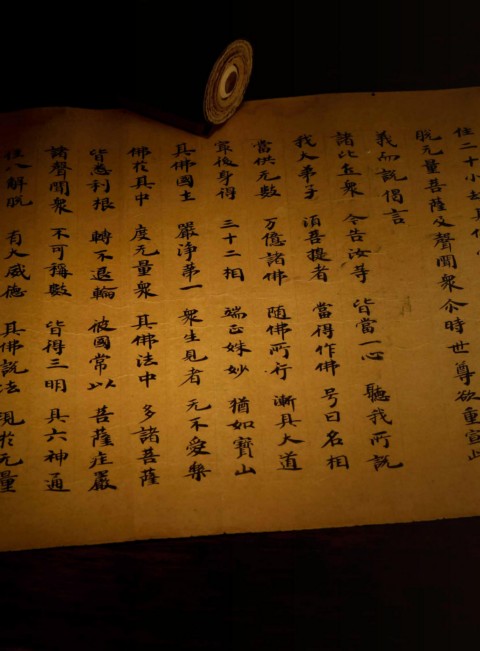 住二十小劫其
脫无量菩薩及聲聞衆尒時世尊欲重宣此
義而說偈言
諸比丘衆 今告汝等 皆當一心 聽我所說
我大弟子 湏菩提者 當得作佛 号曰名相
當供无數 万億諸佛 隨佛所行 漸具大道
最後身得 三十二相 端正姝妙 猶如寶山
其佛國土 嚴淨第一 衆生見者 无不愛樂
佛於其中 度无量衆 其佛法中 多諸菩薩
皆悉利根 轉不退輪 彼國常以 菩薩莊嚴
諸聲聞衆 不可稱數 皆得三明 具六神通
住八解脫 有大威德 其佛說法 現於无量